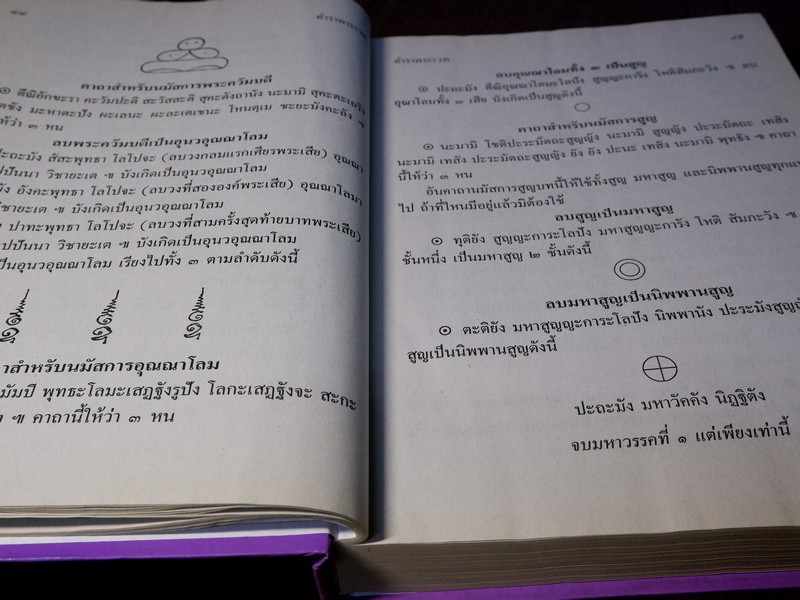 ๔๔ ตำราพระเวท
คาถาสำหรับนมัสการพระควัมบดี
๏ ตีณิอักขะรา ควัมปะติ สะวัสสะติ สุคะตังถานัง นะมามิ สุคะตะเถรัง
มะหาตะปัง ผะเลนะ ผะละเตเชนะ โหนตุเม ชะยะมังคะลัง ฯ
ให้ว่า ๓ หน
ลบพระควัมบดีเป็นอุนวอุณณาโลม
ปะถะมัง สีสะพุทธา โลโปจะ (ลบวงกลมแรกเศียรพระเสีย) อุณณา
ปปันนา วิชายะเต ฯ บังเกิดเป็นอุนวอุณณาโลม
ยัง อังคะพุทธา โลโปจะ (ลบวงที่สององค์พระเสีย) อุณณาโลมา
วิชายะเต ฯ บังเกิดเป็นอุนวอุณณาโลม
ปาทะพุทธา โลโปจะ (ลบวงที่สามครั้งสุดท้ายบาทพระเสีย)
ปปันนา วิชายะเต ฯ บังเกิดเป็นอุนวอุณณาโลม
เป็นอุนวอุณณาโลม เรียงไปทั้ง ๓ ตามลำดับดังนี้
าสำหรับนมัสการอุณณาโลม
มัมปิ พุทธะโลมะเสฏฐังรูปัง โลกะเสฏฐังจะ สะกะ
ฯ คาถานี้ให้ว่า ๓ หน
ตำราพระเวท ๔๕
ลบอุณณาโลมทั้ง ๓ เป็นสูญ
๏ ปะถะมัง ตีณิอุณณาโลมะโลปัง สูญญะการัง โหติสัมภะวัง ฯ ลบ
อุณาโลมทั้ง ๓ เสีย บังเกิดเป็นสูญดังนี้
คาถาสำหรับนมัสการสูญ
๏ นะมามิ โชติประระมัตถะสูญญัง นะมามิ สูญญัง ประระมัตถะ เทสิง
นะมามิ เทสัง ประระมัตถะสูญญัง ยัง ยัง ปะนะ เทสิง นะมามิ พุทธัง ฯ คาถา
นี้ให้ว่า ๓ หน
อันคาถานมัสการสูญบทนี้ให้ใช้ทั้งสูญ มหาสูญ และนิพพานสูญทุกแห่ง
ไป ถ้าที่ไหนมีอยู่แล้วมิต้องใช้
ลบสูญเป็นมหาสูญ
๏ ทุติยัง สูญญะการะโลปัง มหาสูญญะการัง โหติ สัมภะวัง ฯ
ชั้นหนึ่ง เป็นมหาสูญ ๒ ชั้นดังนี้
ลบมหาสูญเป็นนิพพานสูญ
๏ ตะติยัง มหาสูญญะการะโลปัง นิพพานัง ปะระมังสูญญัง
สูญเป็นนิพพานสูญดังนี้
ปะถะมัง มหาวัคคัง นิฏฐิตัง
จบมหาวรรคที่ ๑ แต่เพียงเท่านี้